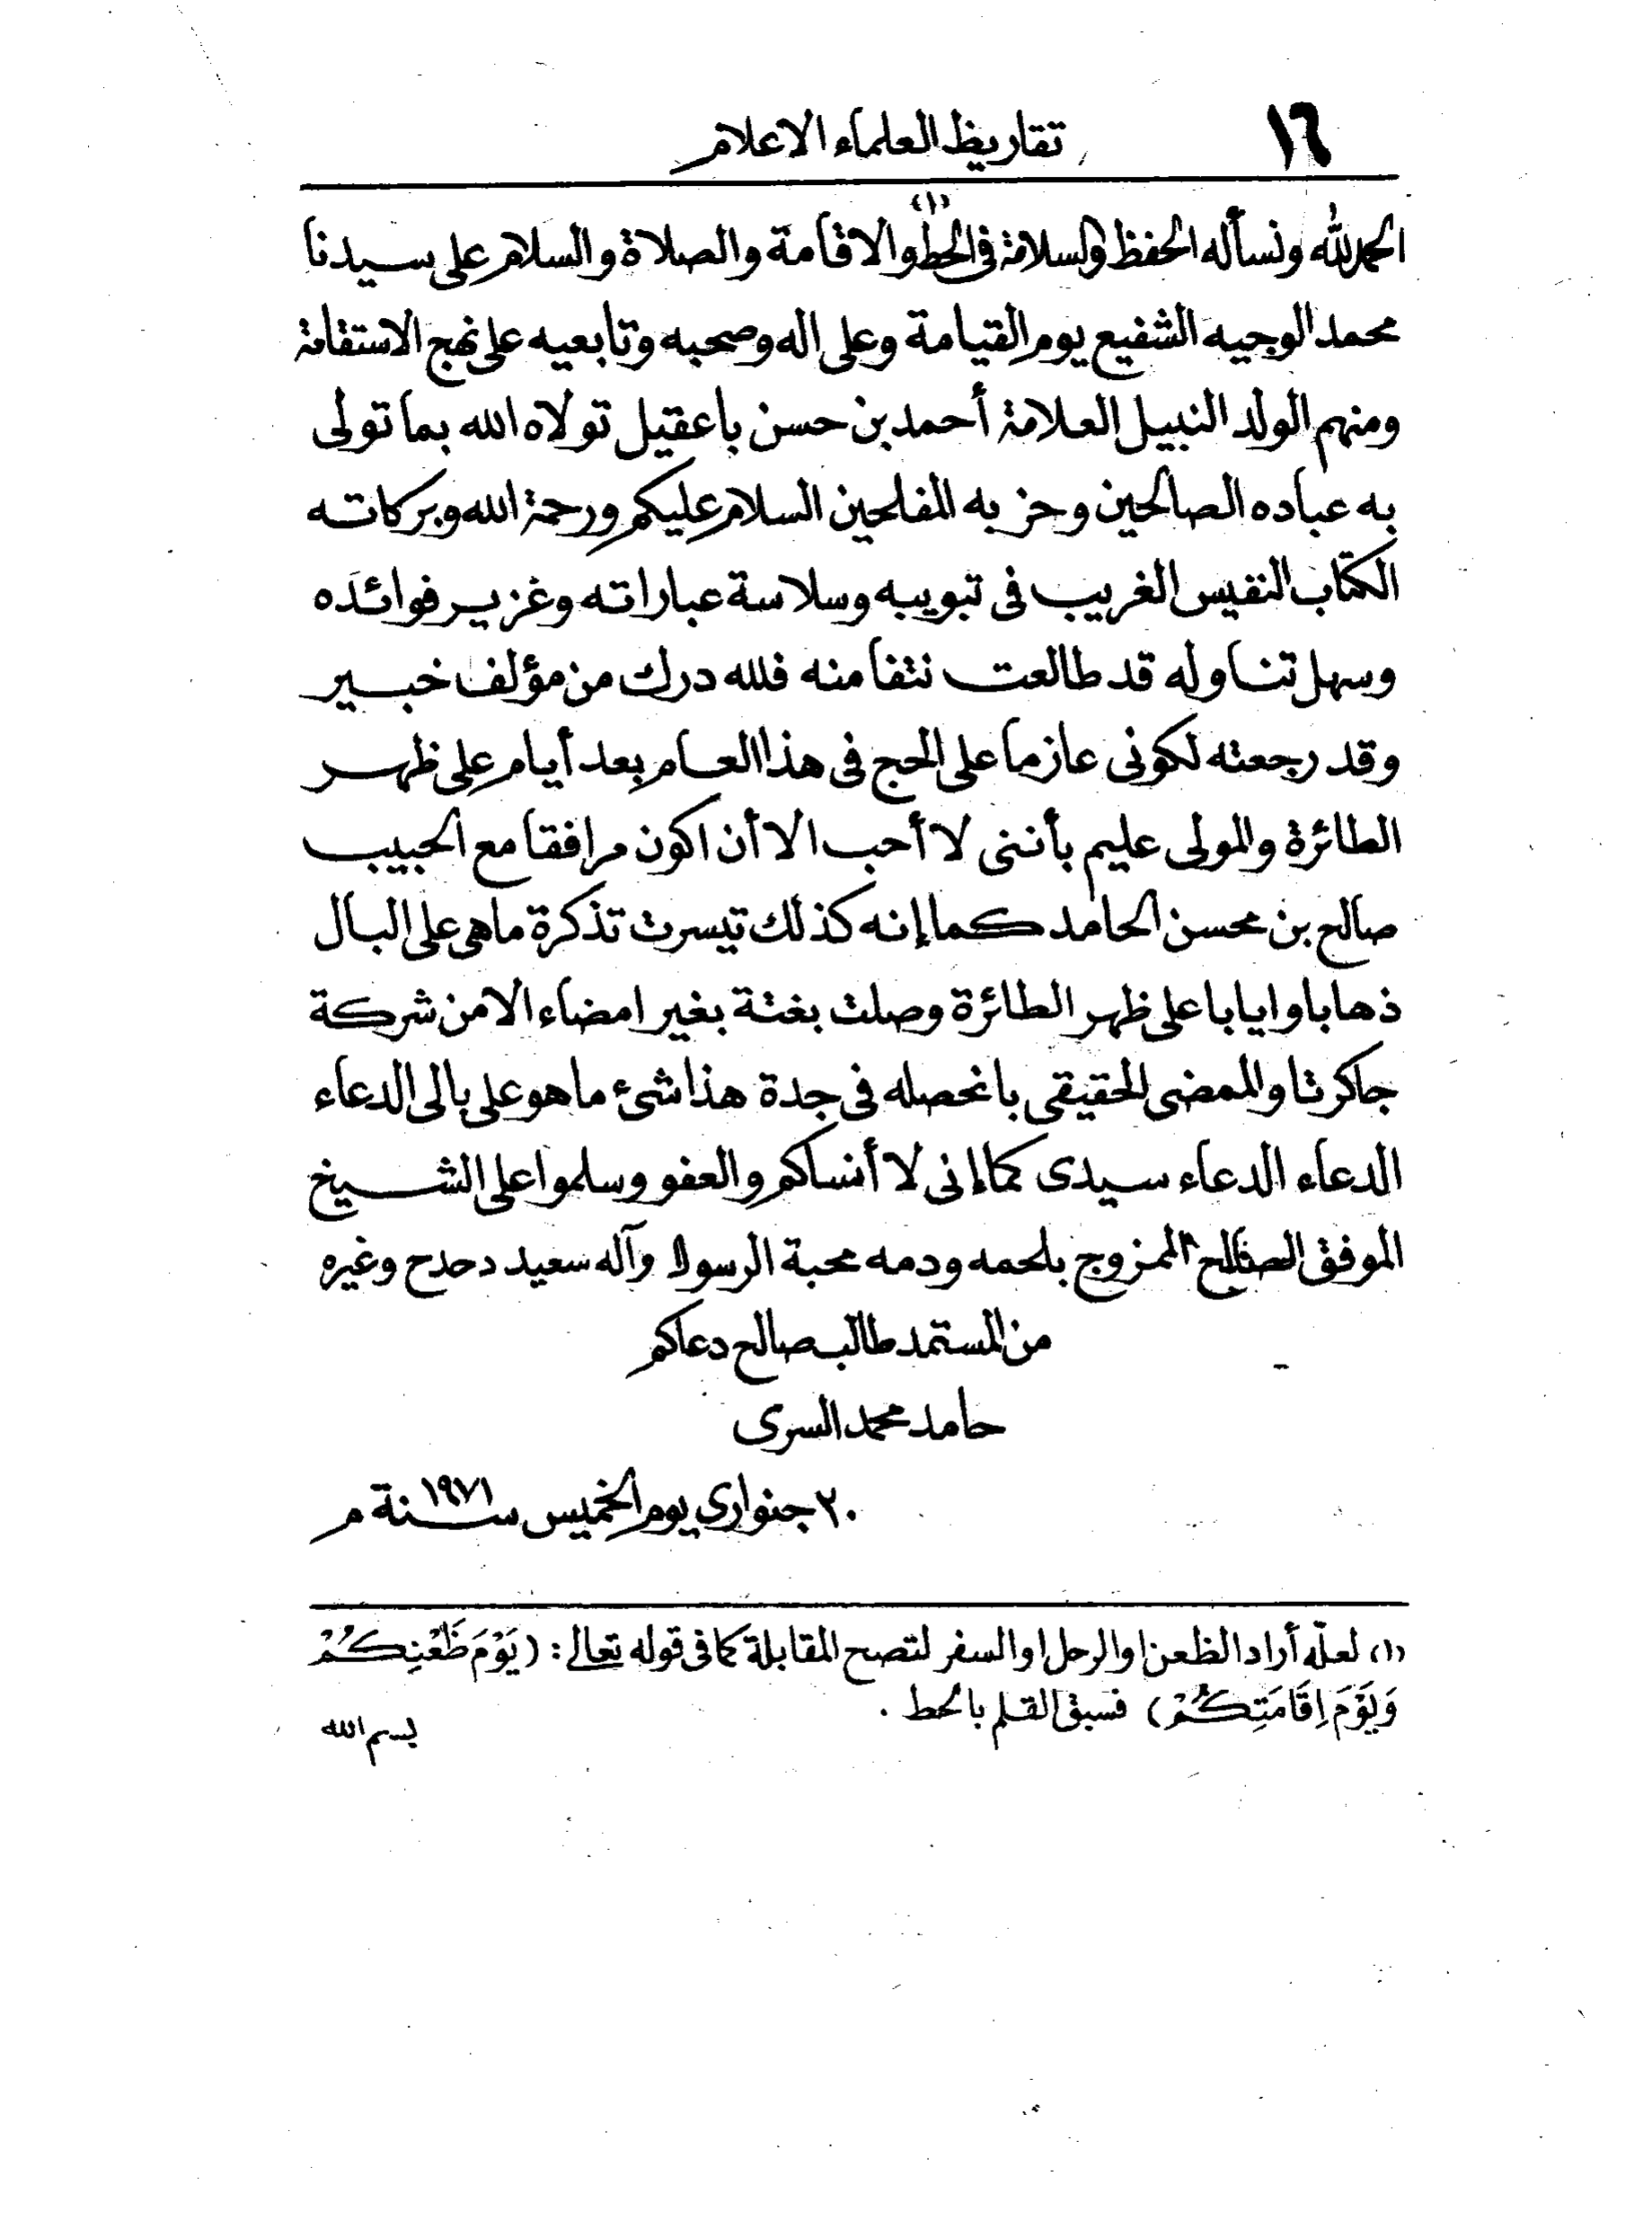 ١٦
تقاريظ العلماء الاعلام
الحمد لله ونسأله الحفظ والسلامة فى الحط (١) والاقامة والصلاة والسلام على سيدنا
محمد الوجيه الشفيع يوم القيامة وعلى اله وصحبه وتابعيه على نهج الاستقامة
ومنهم الولد النبيل العلامة أحمد بن حسن باعقيل تولاه الله بما تولى
به عباده الصالحين وحزبه المفلحين السلام عليكم ورحمة الله وبركاته
الكتاب النفيس الغريب فى تبويبه وسلاسة عباراته وغزير فوائده
وسهل تناوله قد طالعت نتفا منه فلله درك من مؤلف خبير
وقد رجعته لكونى عازما على الحج فى هذا العام بعد أيام على ظهر
الطائرة والمولى عليم بأننى لا أحب الا أن اكون مرافقا مع الحبيب
صالح بن محسن الحامد كما إنه كذلك تيسرت تذكرة ماهى على البال
ذهابا وايابا على ظهر الطائرة وصلت بغتة بغير امضاء الا من شركة
جاكرتا والممضى الحقيقى بانحصله فى جدة هذا شئ ما هو على بالى الدعاء
الدعاء الدعاء سيدى كما إنى لا أنساكم والعفو وسلموا على الشيخ
الموفق الصالح الممزوج بلحمه ودمه محبة الرسول وآله سعيد دحدح وغيره
من المستمد طالب صالح دعاكم
حامد محمد السرى
٢٠ جنواري يوم الخميس سنة ١٩٧١ م
(١) لعلّه أراد الظعن او الرحل او السفر لتصح المقابلة كما فى قوله تعالى : (يَوْمَ ظَعْنِكُمْ
وَيَوْمَ إِقَامَتِكُمْ) فسبق القلم بالحط .
بسم الله